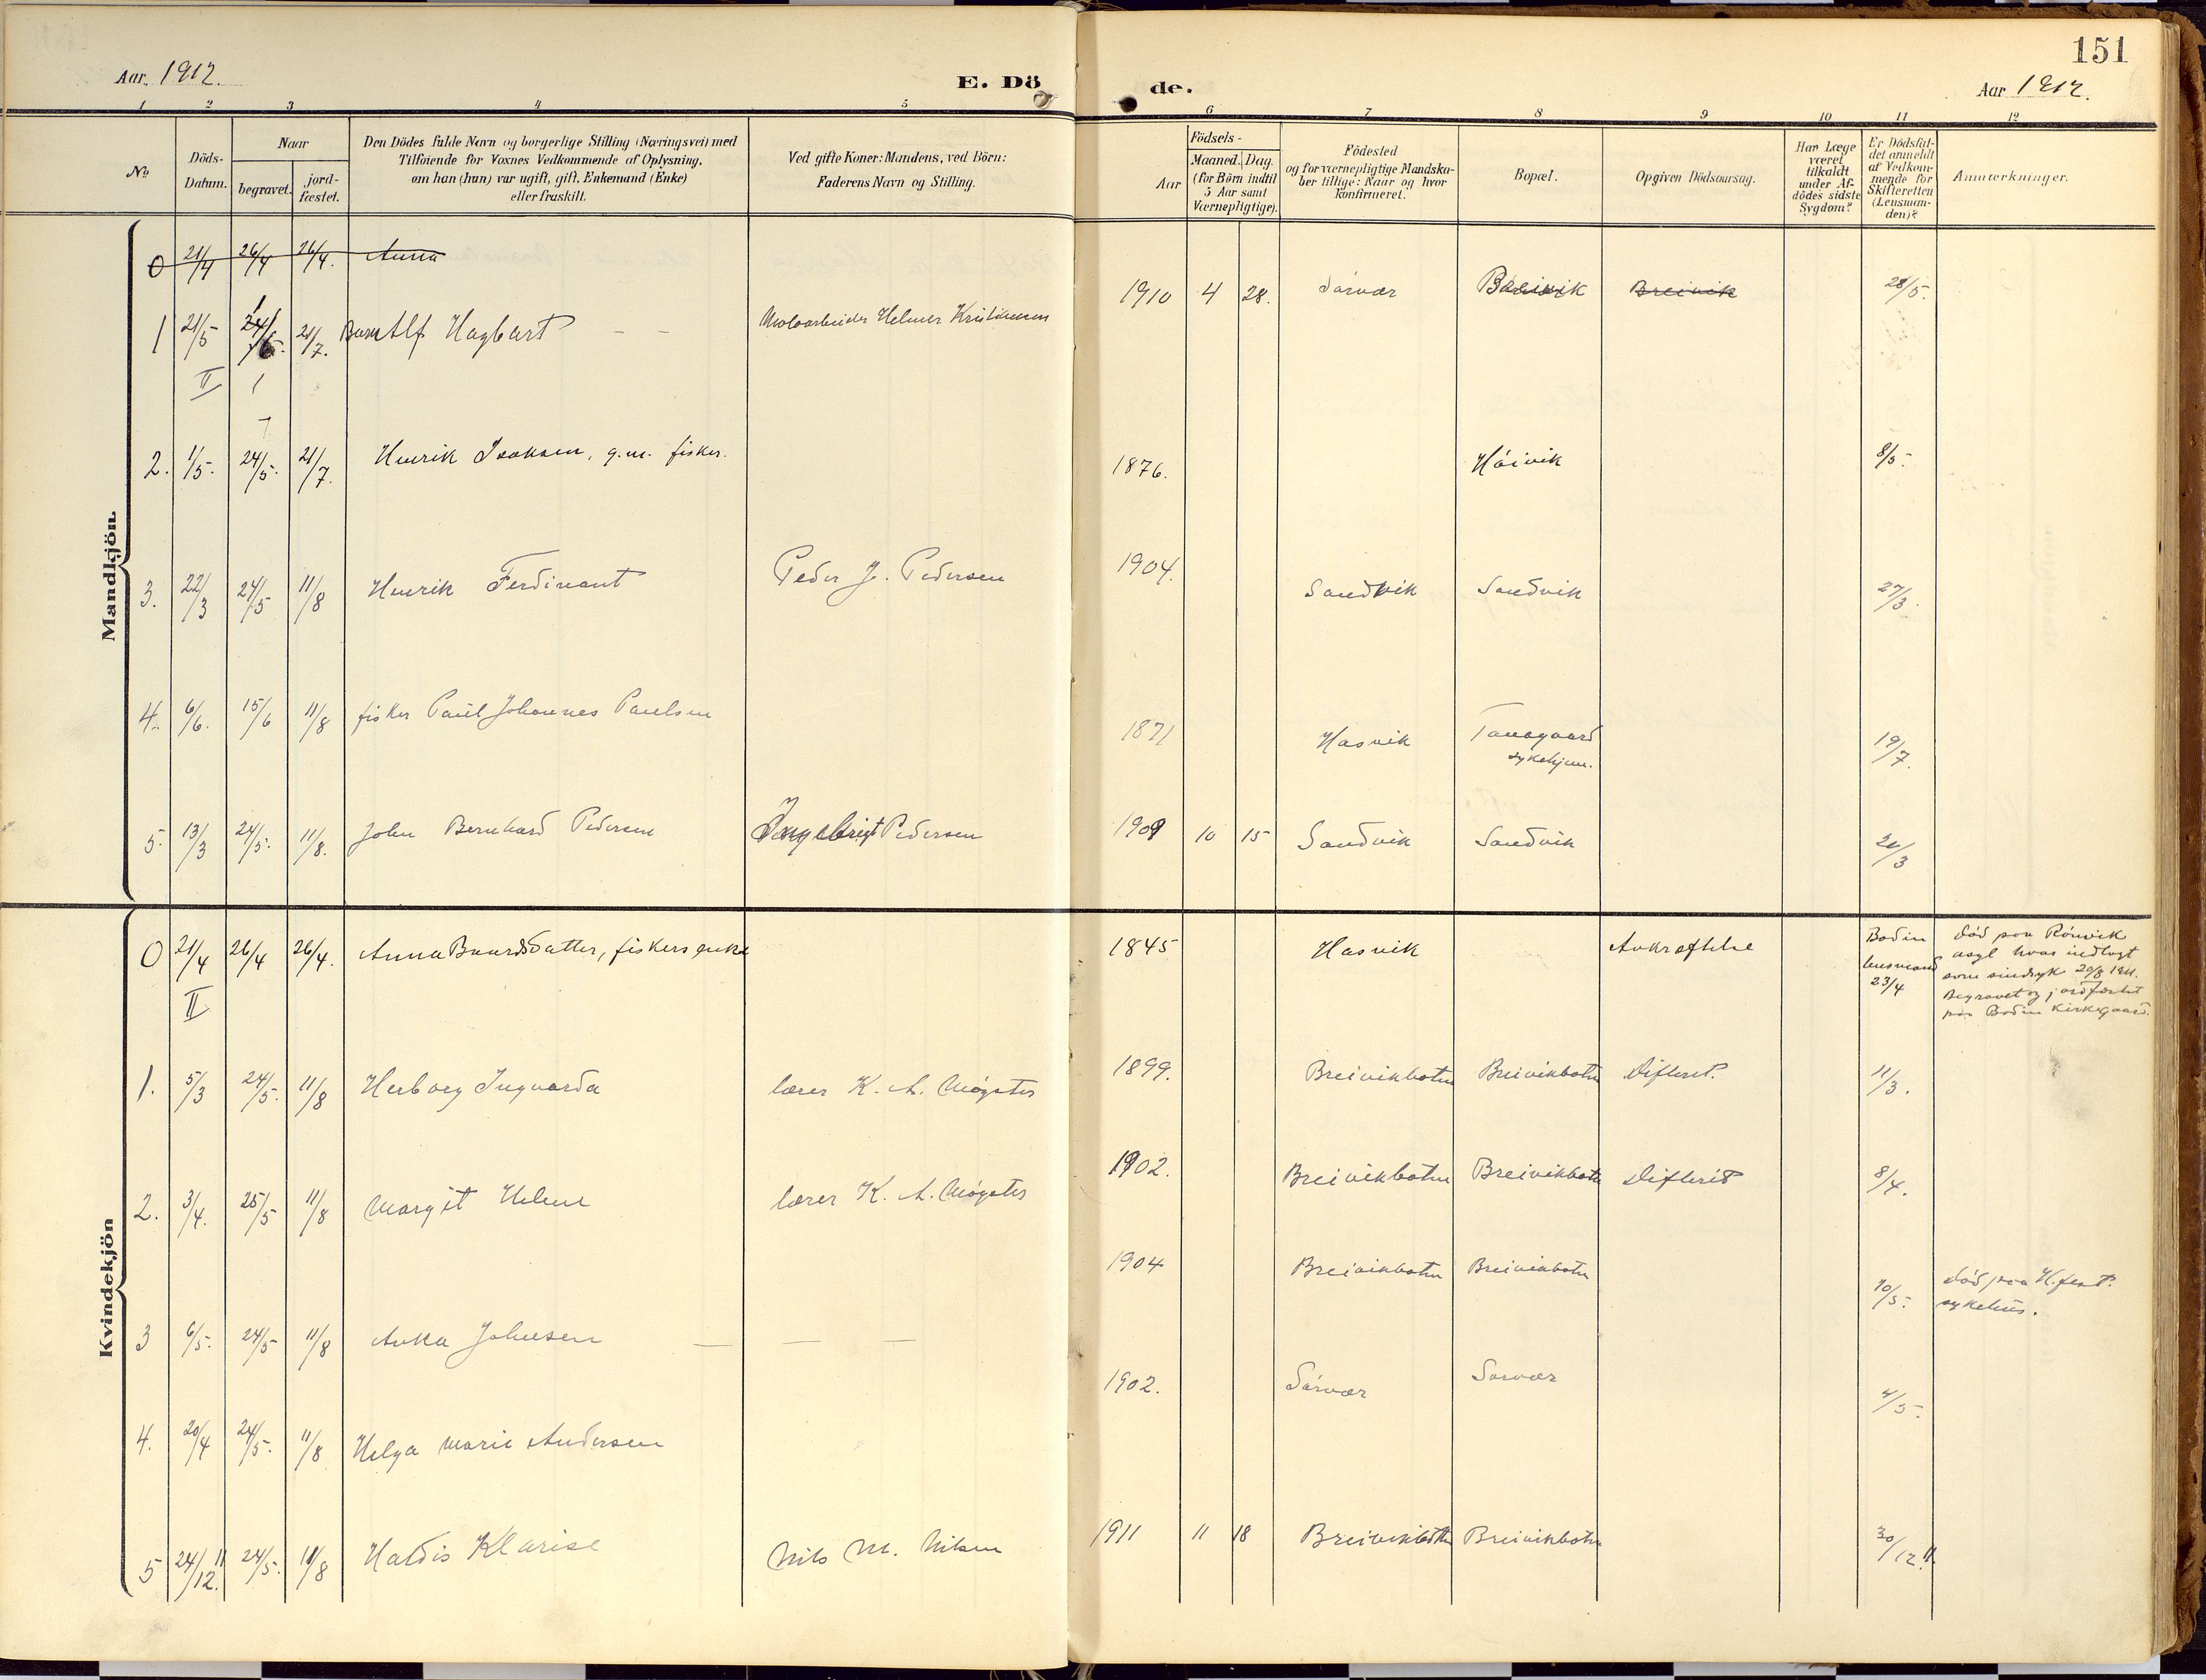 151
Aar. 1912.
E. Döde.
Aar 1912.
1 2 3 4 5 6 7 8 9 10 11 12
No.
Döds-Datum.
Naar
begravet.
jord-fæstet.
Den Dödes fulde Navn og borgerlige Stilling (Næringsvei) med
Tilföiende for Voxnes Vedkommende af Oplysning,
om han (hun) var ugift, gift, Enkemand (Enke)
eller fraskilt.
Ved gifte Koner: Mandens, ved Börn:
Faderens Navn og Stilling.
Födsels-
Aar
Maaned. Dag.
(for Börn indtil
5 Aar samt
Værnepligtige).
Födested
og for værnepligtige Mandska-
ber tillige: Naar og hvor
konfirmeret.
Bopæl.
Opgiven Dödsaarsag.
Har Læge
været
tilkaldt
under Af-
dödes sidste
Sygdom?
Er Dödsfal-
det anmeldt
af Vedkom-
mende for
Skifteretten
(Lensman-
den)?
Anmærkninger.
Mandkjön.
0 21/4 26/4 26/4. Anna
1 21/5 21/7. Barn Alf Hagbart — — Moloarbeider Helmer Kristiansen 1910 4 28. Sørvær Breivik 28/5.
II 1
7
2. 1/5. 24/5. 21/7. Henrik Isaksen, g.m. fisker. 1876. Høivik 8/5.
3. 22/3 24/5 11/8 Henrik Ferdinant Peder J. Pedersen 1904. Sandvik Sandvik 27/3.
4. 6/6. 15/6 11/8 fisker Paul Johannes Paulsen 1871 Hasvik sykehjem. 19/7.
5. 13/3 24/5. 11/8. John Bernhard Pedersen Ingebrigt Pedersen 1909 10 15 Sandvik Sandvik 20/3
Kvindekjön
0 21/4 26/4 26/4. Anna Baardsdatter, fiskers enke 1845 Hasvik Avkræftelse Bodin lensmand 23/4 død paa Rønvik
asyl hvor indlagt
som sindsyk 20/8 1911.
Begravet og jordfæstet
paa Bodin Kirkegaard.
II
1. 5/3 24/5. 11/8 Herborg Ingvarda lærer K. A. Møgster 1899. Breivikbotn Breivikbotn Difterit. 11/3.
2. 3/4. 25/5 11/8 Margit Helene lærer K. A. Møgster 1902. Breivikbotn Breivikbotn Difterit 8/4.
3 6/5. 24/5 11/8 Anka Johnsen — — — 1904 Breivikbotn Breivikbotn 10/5. død paa H.fest.
sykehus.
4. 20/4 24/5. 11/8 Helga Marie Andersen 1902. Sørvær Sørvær 4/5.
5 24/12. 11 24/5. 11/8 Haldis Klarise Nils M. Nilsen 1911 11 18 Breivikbotn Breivikbotn 30/12 11.